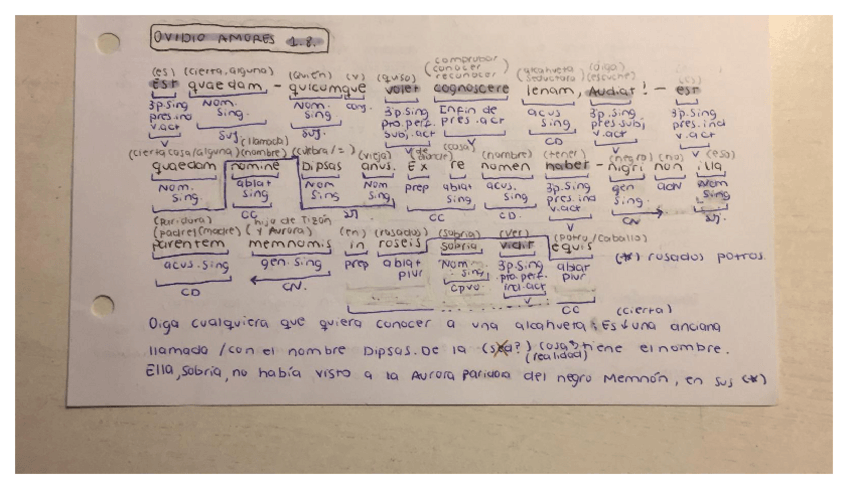 OVIDIO AMORES 1.8.
(es) (cierta, alguna) (quién) (y) (quso) (comprobar conocer reconocer) (alcahueta seductora) (oiga) (escuche) (es)
Est quaedam - quicumque volet cognoscere lenam, Audiat! - est
3p.sing pres.ind v.act Nom. Sing. Nom. Sing. conj. 3p.sing pto.perf. subj.act Enfin de pres.act acus sing 3p.sing pres.subj v.act 3p.sing pres.ind v.act
V suj. suj. V V CD V V
(cierta cosa/alguna) (llamada) (nombre) (culebra/=) (vieja) (de) (cosa) (nombre) (tener) (negro) (no) (eso)
quaedam nomine Dipsas anus. Ex re nomen habet - nigri non illa
Nom. Sing. ablat sing Nom Sing Nom Sing prep ablat sing acus. sing 3p.sing pres.ind v.act gen sing. adv Nom Sing
CC suj CC CD. V CN suj.
(paridora) (padre/madre) (hijo de Tizón y Aurora) (en) (rosados) (sobria) (ver) (potro/caballo)
parentem memnonis in roseis sobria vidit equis (*) rosados potros.
acus.sing gen.sing prep ablat plur Nom. sing 3p.sing pto.perf. ind.act ablat plur
CD CN. cpvo V CC
(cierta)
Oiga cualquiera que quiera conocer a una alcahueta: Es una anciana
llamada / con el nombre Dipsas. De la (sed?) cosa tiene el nombre.
(realidad)
Ella, sobria, no había visto a la Aurora paridora del negro Memnón, en sus (*)